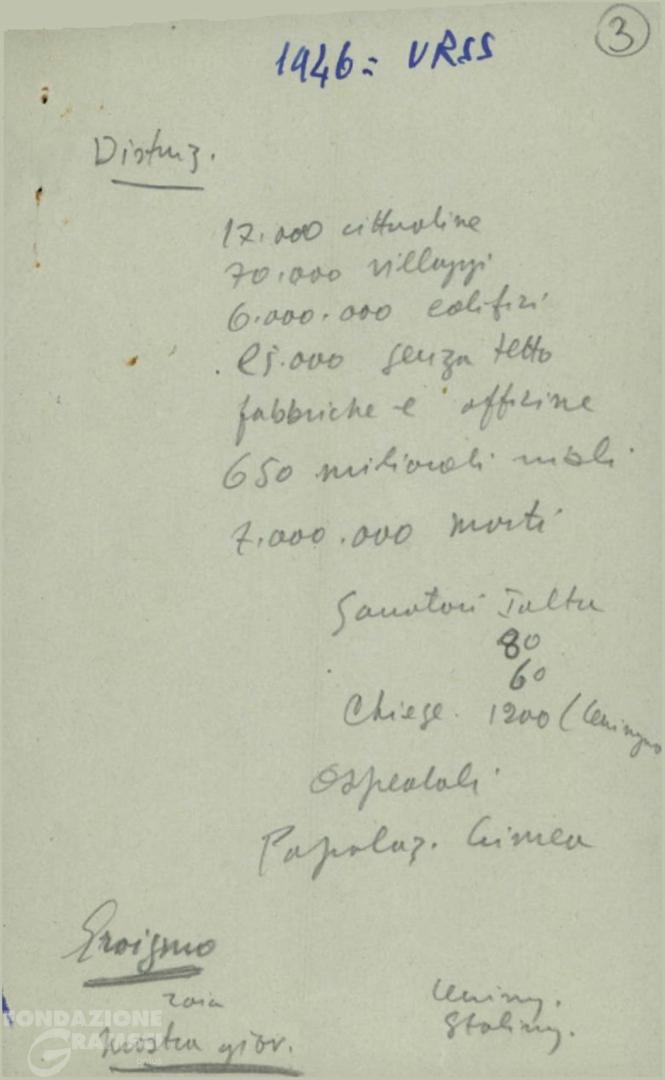 3
1946 = URSS
Distruz.
17.000 cittadine
70.000 villaggi
6.000.000 edifizi
25.000 senza tetto
fabbriche e officine
650 miliardi rubli
7.000.000 morti
Sanatori Ialta
80
60
Chiese. 1200 (Leningr
Ospedali
Popolaz. Crimea
Eroismo
Zoia Lening.
Staling.
Mostra giov.
FONDAZIONE
GRAMSCI